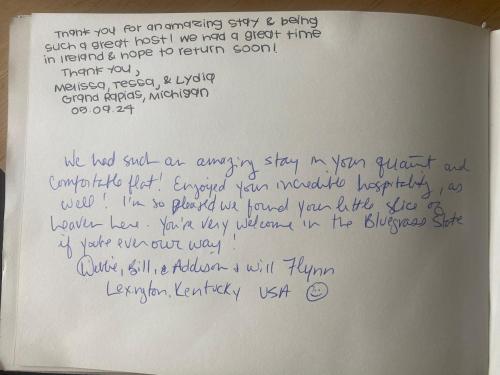 Thank you for an amazing stay & being
such a great host! We had a great time
in Ireland & hope to return soon!
Thank you,
Melissa, Tessa, & Lydia
Grand Rapids, Michigan
09.09.24
We had such an amazing stay in your quaint and
comfortable flat! Enjoyed your incredible hospitality, as
well! I'm so pleased we found your little slice of
heaven here. You're very welcome in the Bluegrass State
if you're ever our way!
Bill, & Addison & Will Flynn
Lexington, Kentucky USA